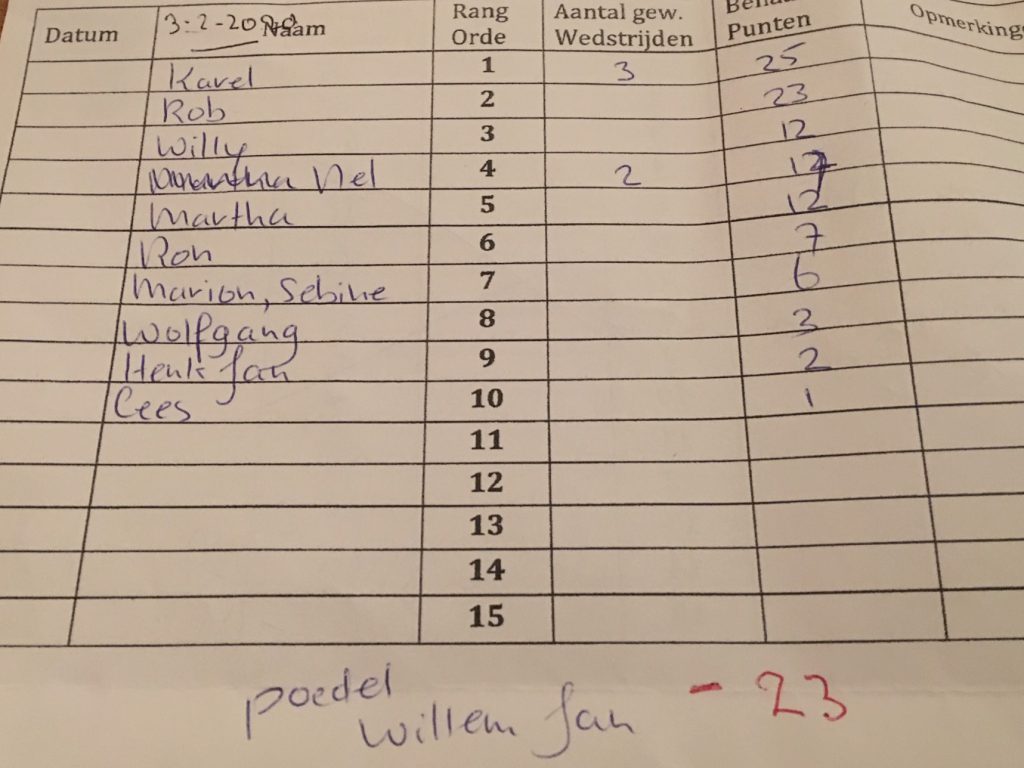 Datum 3-2-2020 Naam Rang Orde Aantal gew. Wedstrijden Punten
Karel 1 3 25
Rob 2 23
Willy 3 12
Nel 4 2
Martha 5 12
Ron 6 7
Marion, Sebine 7 6
Wolfgang 8 3
Henk Jan 9 2
Cees 10 1
11
12
13
14
15
poedel
Willem Jan - 23